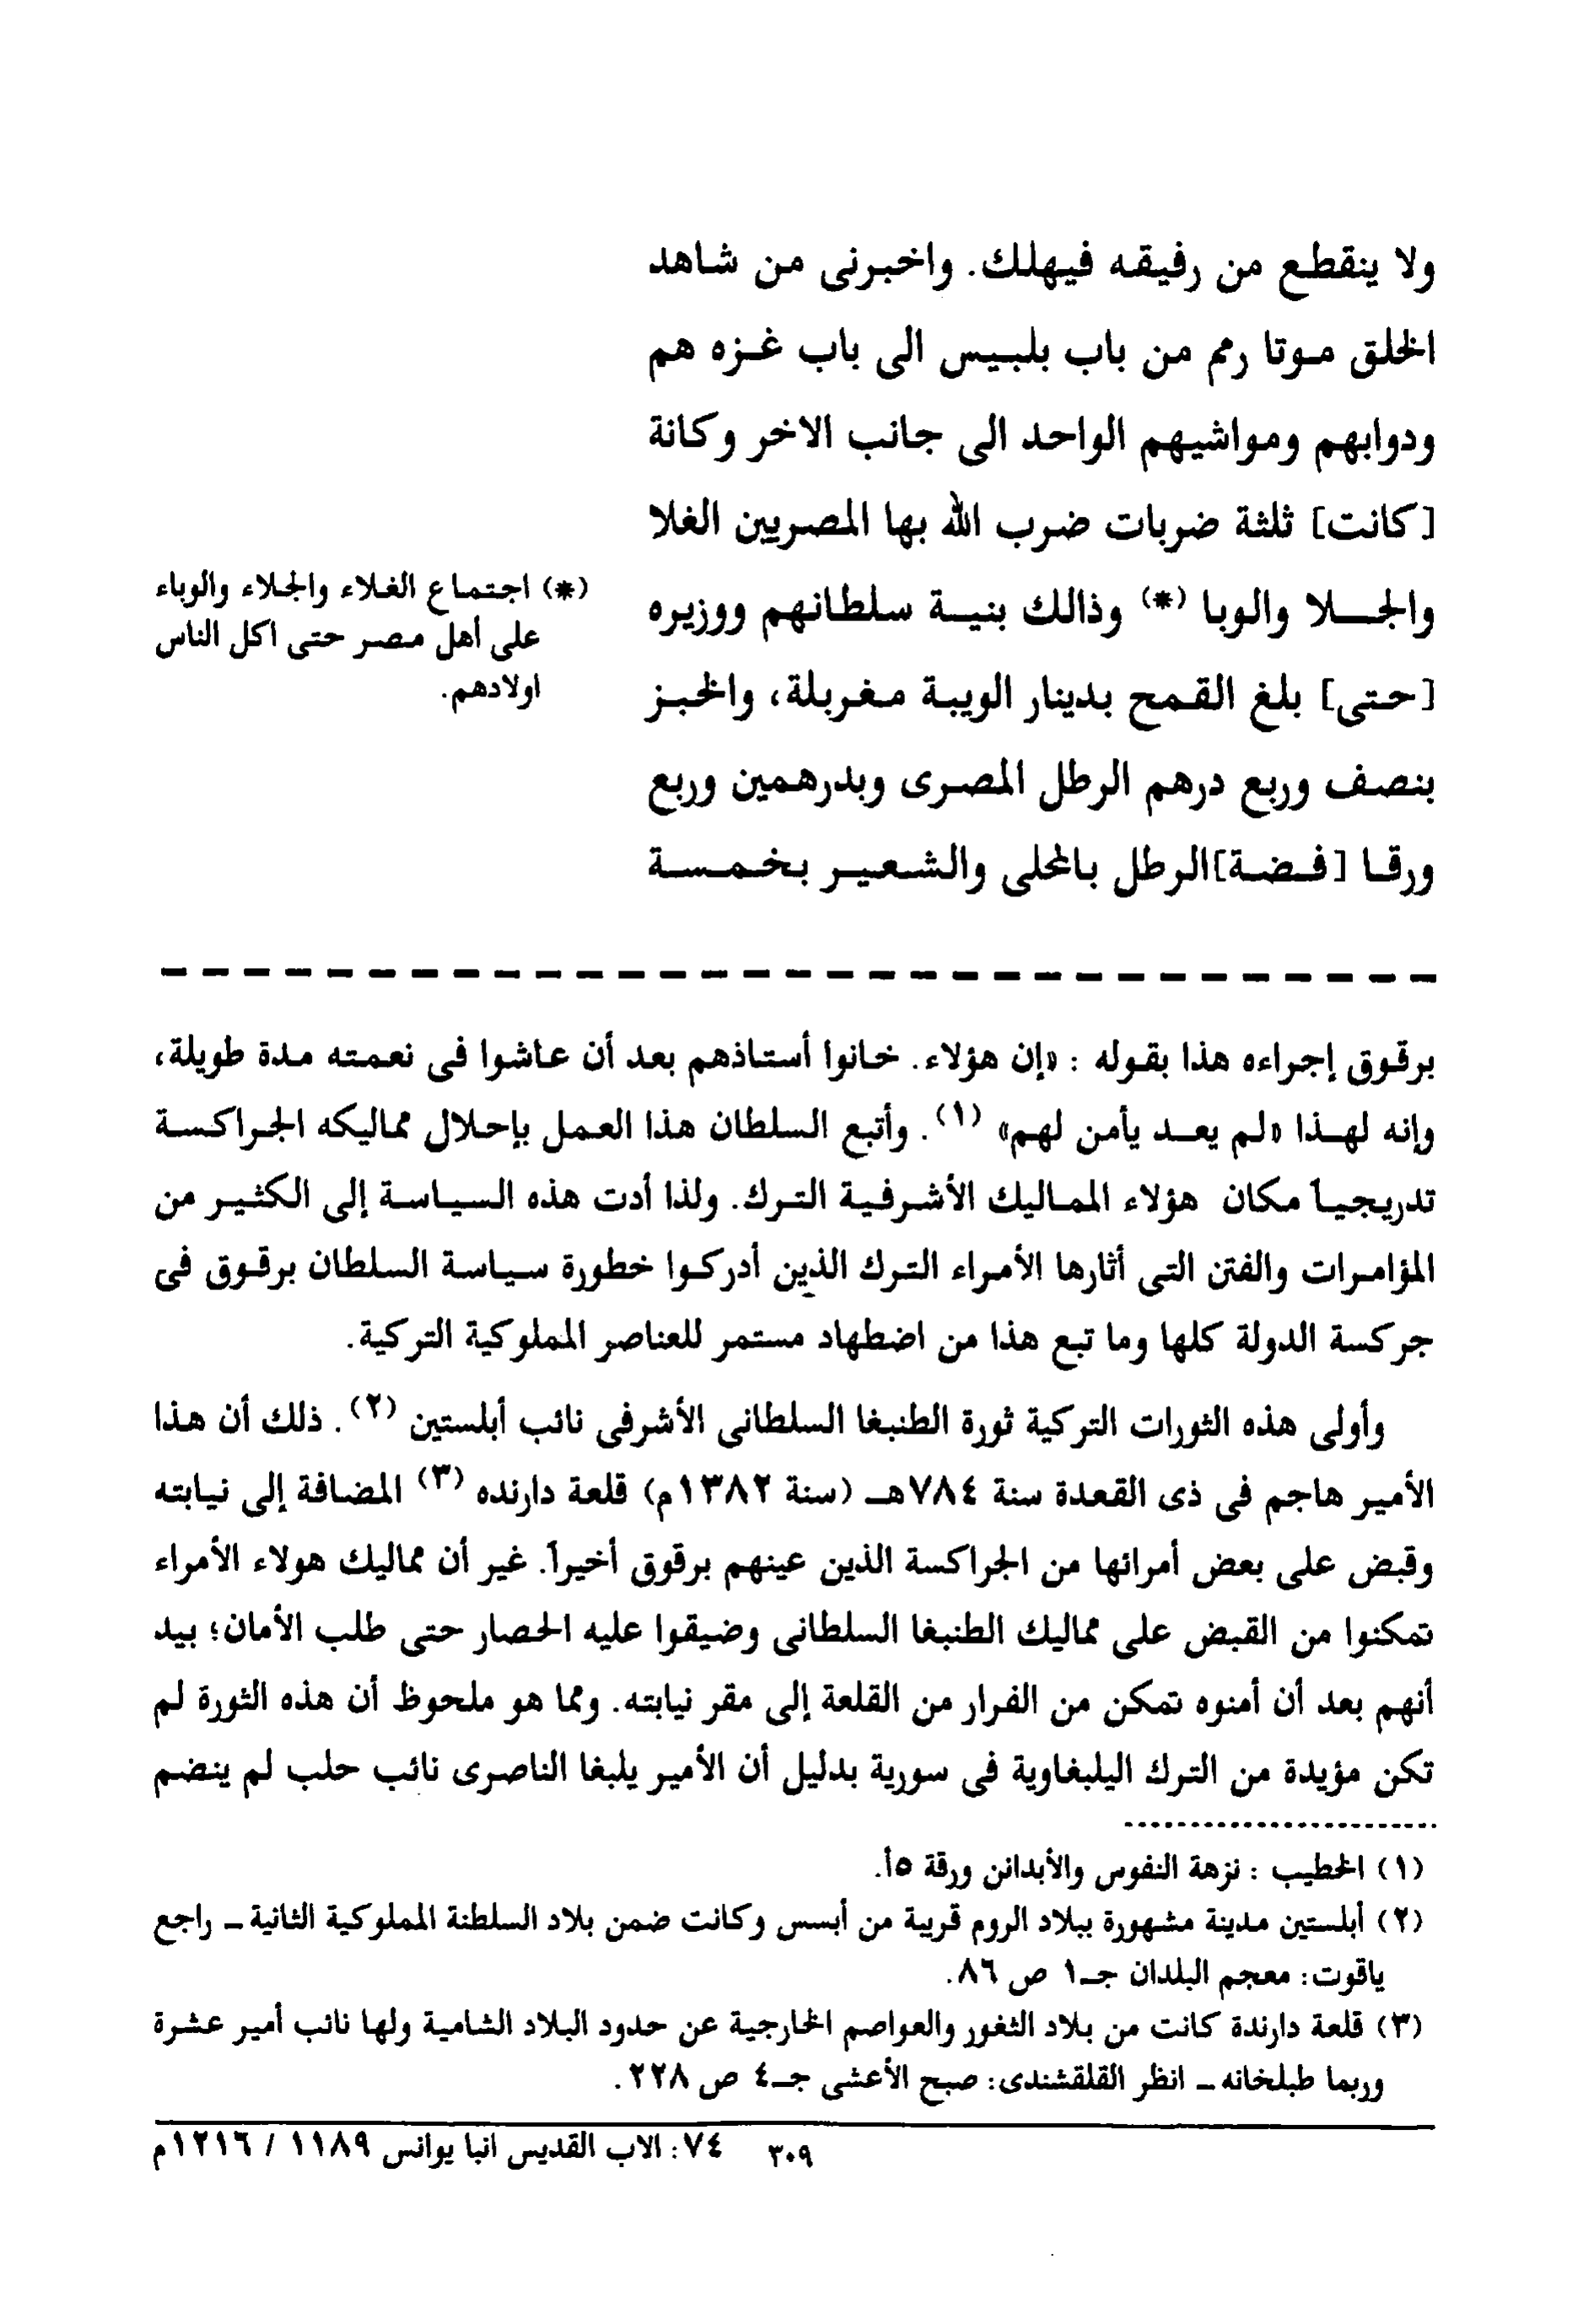 ولا ينقطع من رفيقه فيهلك. واخبرنى من شاهد
الخلق موتا رمم من باب بلبيس الى باب غزه هم
ودوابهم ومواشيهم الواحد الى جانب الاخر وكانة
[كانت] ثلثة ضربات ضرب الله بها المصريين الغلا
والجلا والوبا (*) وذالك بنية سلطانهم ووزيره
[حتى] بلغ القمح بدينار الويبة مغربلة، والخبز
بنصف وربع درهم الرطل المصرى وبدرهمين وربع
ورقا [فضة] الرطل بالمحلى والشعير بخمسة
(*) اجتماع الغلاء والجلاء والوباء
على أهل مصر حتى اكل الناس
اولادهم.
برقوق إجراءه هذا بقوله : «إن هؤلاء. خانوا أستاذهم بعد أن عاشوا فى نعمته مدة طويلة،
وإنه لهذا «لم يعد يأمن لهم» (١). وأتبع السلطان هذا العمل بإحلال مماليكه الجراكسة
تدريجياً مكان هؤلاء المماليك الأشرفية الترك. ولذا أدت هذه السياسة إلى الكثير من
المؤامرات والفتن التى أثارها الأمراء الترك الذين أدركوا خطورة سياسة السلطان برقوق فى
جركسة الدولة كلها وما تبع هذا من اضطهاد مستمر للعناصر المملوكية التركية.
وأولى هذه الثورات التركية ثورة الطنبغا السلطانى الأشرفى نائب أبلستين (٢). ذلك أن هذا
الأمير هاجم فى ذى القعدة سنة ٧٨٤هـ (سنة ١٣٨٢م) قلعة دارنده (٣) المضافة إلى نيابته
وقبض على بعض أمرائها من الجراكسة الذين عينهم برقوق أخيراً. غير أن مماليك هولاء الأمراء
تمكنوا من القبض على مماليك الطنبغا السلطانى وضيقوا عليه الحصار حتى طلب الأمان؛ بيد
أنهم بعد أن أمنوه تمكن من الفرار من القلعة إلى مقر نيابته. ومما هو ملحوظ أن هذه الثورة لم
تكن مؤيدة من الترك اليلبغاوية فى سورية بدليل أن الأمير يلبغا الناصرى نائب حلب لم ينضم
(١) الخطيب : نزهة النفوس والأبدانن ورقة ٥أ.
(٢) أبلستين مدينة مشهورة ببلاد الروم قريبة من أبسس وكانت ضمن بلاد السلطنة المملوكية الثانية ـ راجع
ياقوت: معجم البلدان جـ١ ص ٨٦.
(٣) قلعة دارندة كانت من بلاد الثغور والعواصم الخارجية عن حدود البلاد الشامية ولها نائب أمير عشرة
وربما طبلخانه ـ انظر القلقشندى: صبح الأعشى جـ٤ ص ٢٢٨.
٣٠٩ ٧٤: الاب القديس انبا يوانس ١١٨٩ / ١٢١٦م